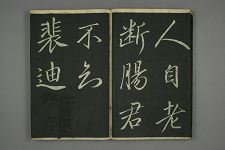 人自老
断腸君
不々
裴迪